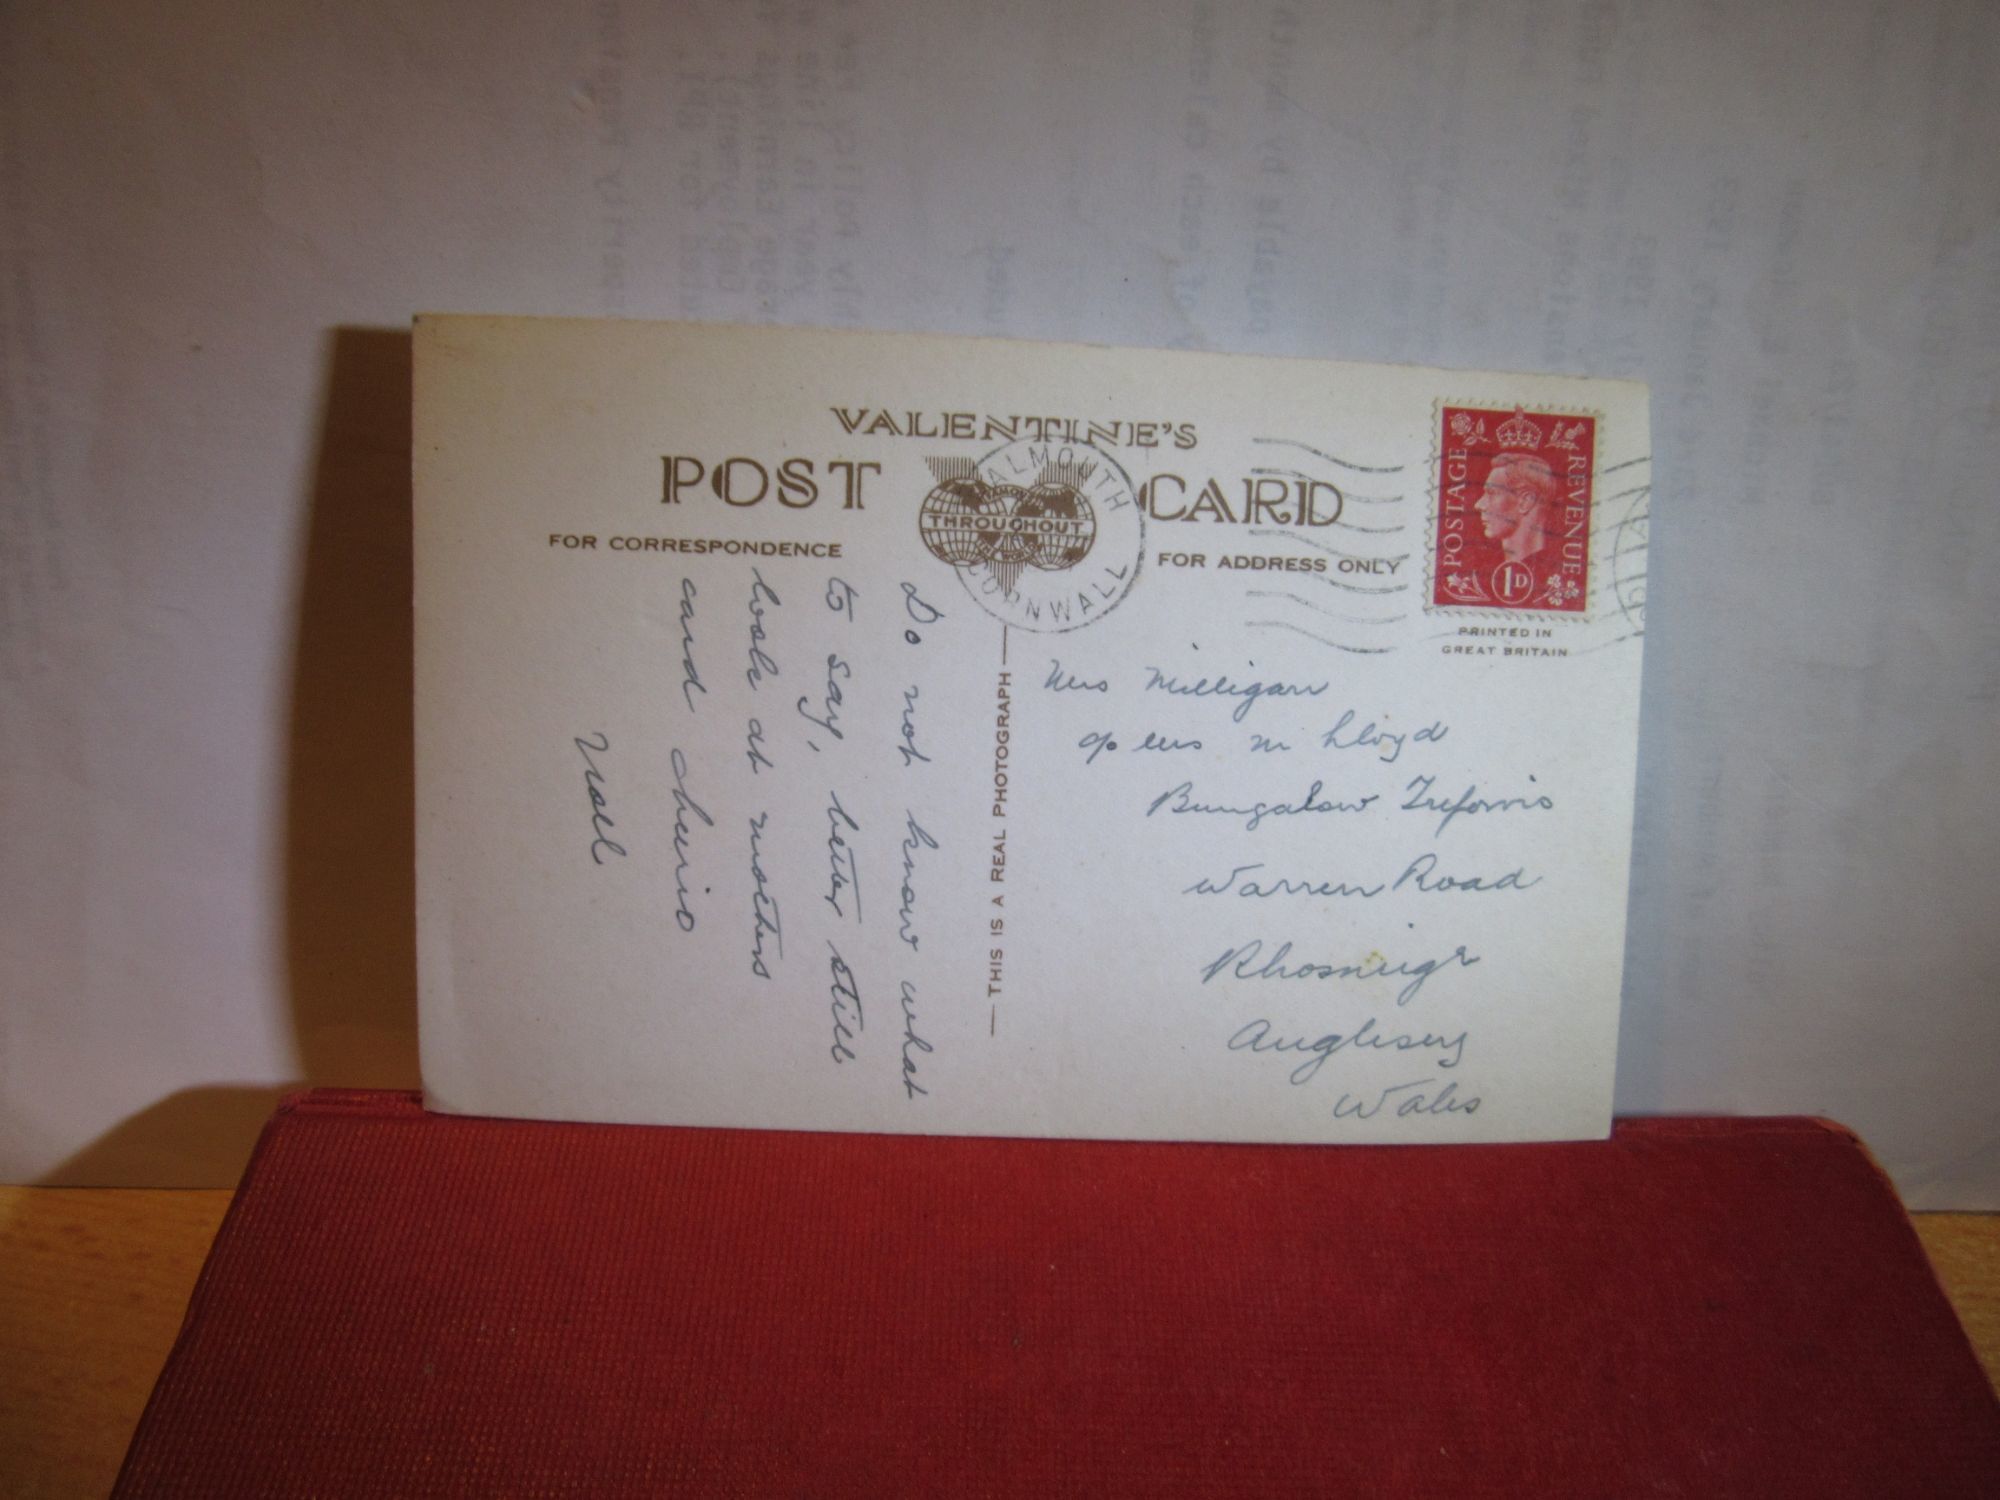 VALENTINE'S
POST CARD
FAMOUS
THROUGHOUT
THE WORLD
FALMOUTH
CORNWALL
FOR CORRESPONDENCE
FOR ADDRESS ONLY
POSTAGE
REVENUE
1D
PRINTED IN
GREAT BRITAIN
THIS IS A REAL PHOTOGRAPH
Do not know what
to say, better still
look at mothers
card cheerio
Noel
Mrs Milligan
c/o Mrs M Lloyd
Bungalow
Warren Road
Rhosneigr
Anglesey
Wales